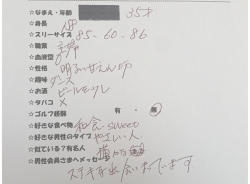 ☆なまえ・年齢 35才
☆身長
☆スリーサイズ 85-60-86
☆職業
☆血液型
☆性格 明るい甘えん坊
☆趣味 ダンス
☆お酒 ビール
☆タバコ ×
☆ゴルフ経験 有・無
☆好きな食べ物 和食 sweet
☆好きな男性のタイプ やさしい人
☆似ている?有名人
☆男性会員さまへメッセ
ステキな出会いまってます